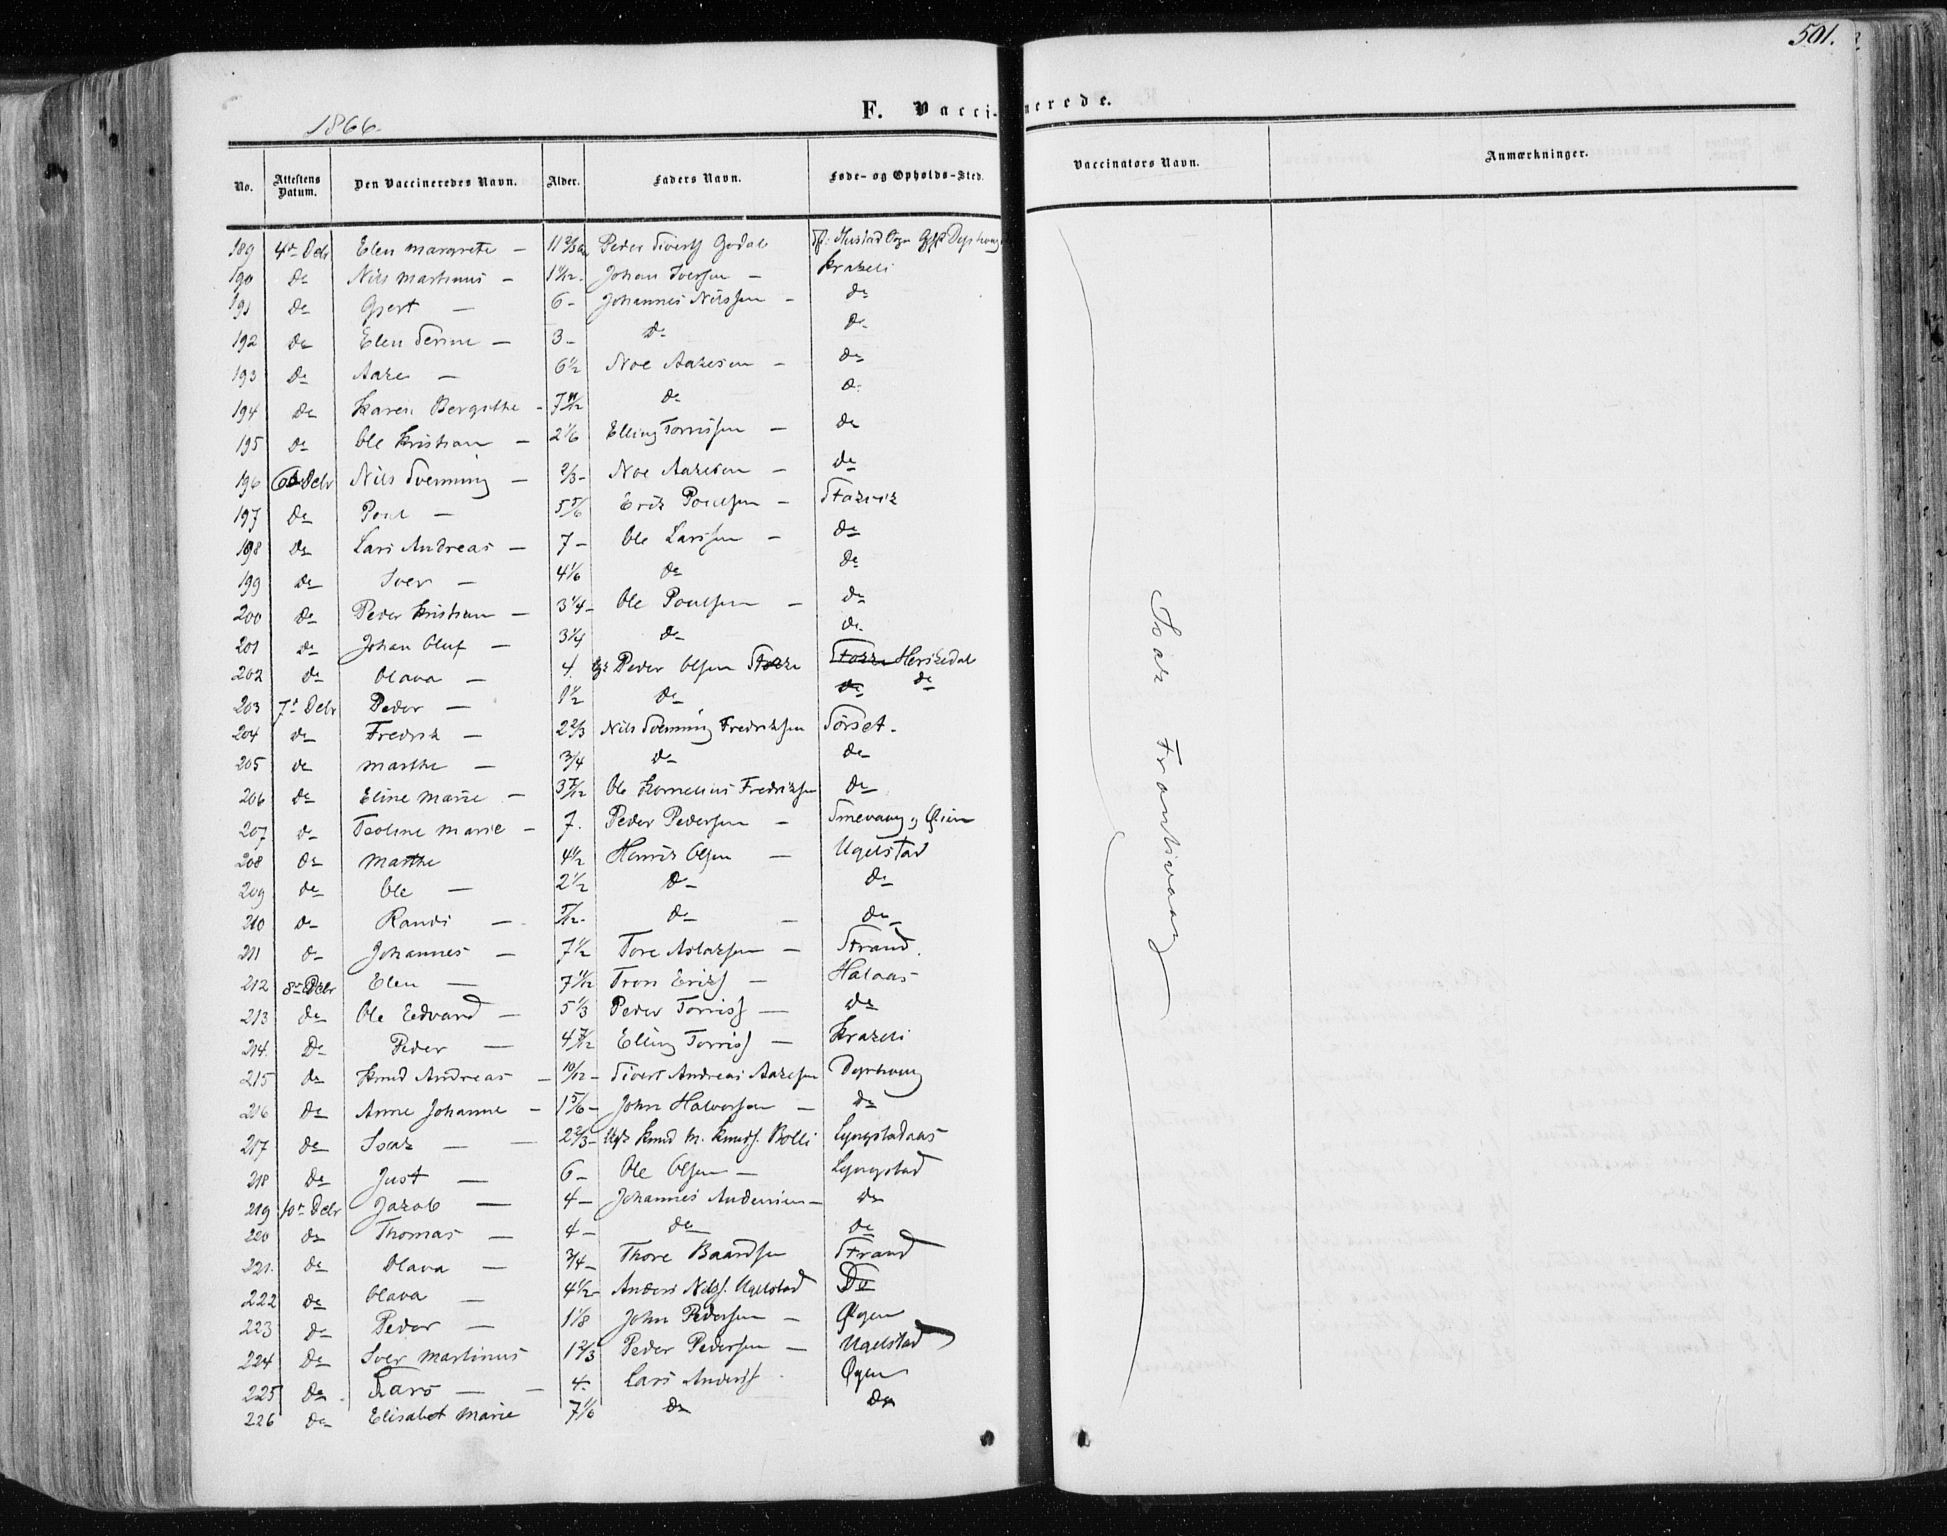 501.
1866.
F. Vacci-nerede.
No. Attestens Datum. Den Vaccineredes Navn. Alder. Faders Navn. Føde- og Opholds-Sted. Vaccinators Navn. Anmærkninger.
189 4de Debr Elen Margrete — 11 2/3 Peder Sivertss Godal
190 De Nils Martinus — Johan Iversen — Krakeli
191 De Gjert — 6 - Johannes Nilssen - De
192 De Elen Serine — 3 - De De
193 De Aake — 6 1/2 Noe Aakesen - De
194 De Karen Bergithe - 7 11/12 De De
195 De Ole Kristian — 2 1/6 Elling Tomissen — De
196 6 Debr Nils Svenning — 2/3 - Noe Aakesen — De
197 De Poul — 5 5/6 Erik Poulsen — Stokvik
198 De Lars Andreas — 7 - Ole Larssen — De
199 De Iver — 4 1/6 De De
200 De Peder Kristian — 3 1/4 - Ole Poulsen — De
201 De Johan Oluf — 3 1/4 De De
202 De Olava — 4. Peder Olsen Stokke Stokke Heriksdal
203 7de Debr Peder — 1 1/2 De De De
204 De Fredrik — 2 2/3 Nils Svenning Fredriksen Sørset.
205 De Marthe — 3/4 De De
206 De Eline Marie — 3 7/12 Ole Kornelius Fredriksen De
207 De Teoline Marie — 7. Peder Pedersen — Smevaag, Øien
208 De Marthe 4 1/2 Henrik Olsen — Ugelstad
209 De Ole — 2 1/2 De De
210 De Randi — 5/12 - De — De
211 De Johannes — 7 1/2 Tore Aslaksen — Strand.
212 8de Debr Elen — 7 11/12 Tron Eriks — Halaas
213 De Ole Edvard — 5 1/3 Peder Torris — De
214. De Peder — 4 7/12 Elling Torris — Krakeli
215 De Knud Andreas — 10/12 - Sivert Andreas Aakesen Dyrhaug
216 De Anne Johanne — 1 5/6 - John Halvorsen — De
217 De Isak — 2 2/3 - Ugk Knud M. Knuds. Bolli Lyngstadaas
218 De Just — 6 - Ole Olsen — Lyngstad
219 10de Debr Jakob — 4 - Johannes Andersen — De
220 De Thomas — 4 - De De
221. De Olava — 3/4 - Thore Baardsen Strand
222 De Olava — 4 1/2 - Anders Nilss. Ugelstad De
223 De Peder — 1 1/8 John Pedersen — Øyen
224 De Iver Martinus 1 2/3 Peder Pedersen — Ugelstad
225 De Lars — 4 - Lars Anders Øyen
226 De Elisabet Marie 7 1/6 De De
Isak Frantsvaag